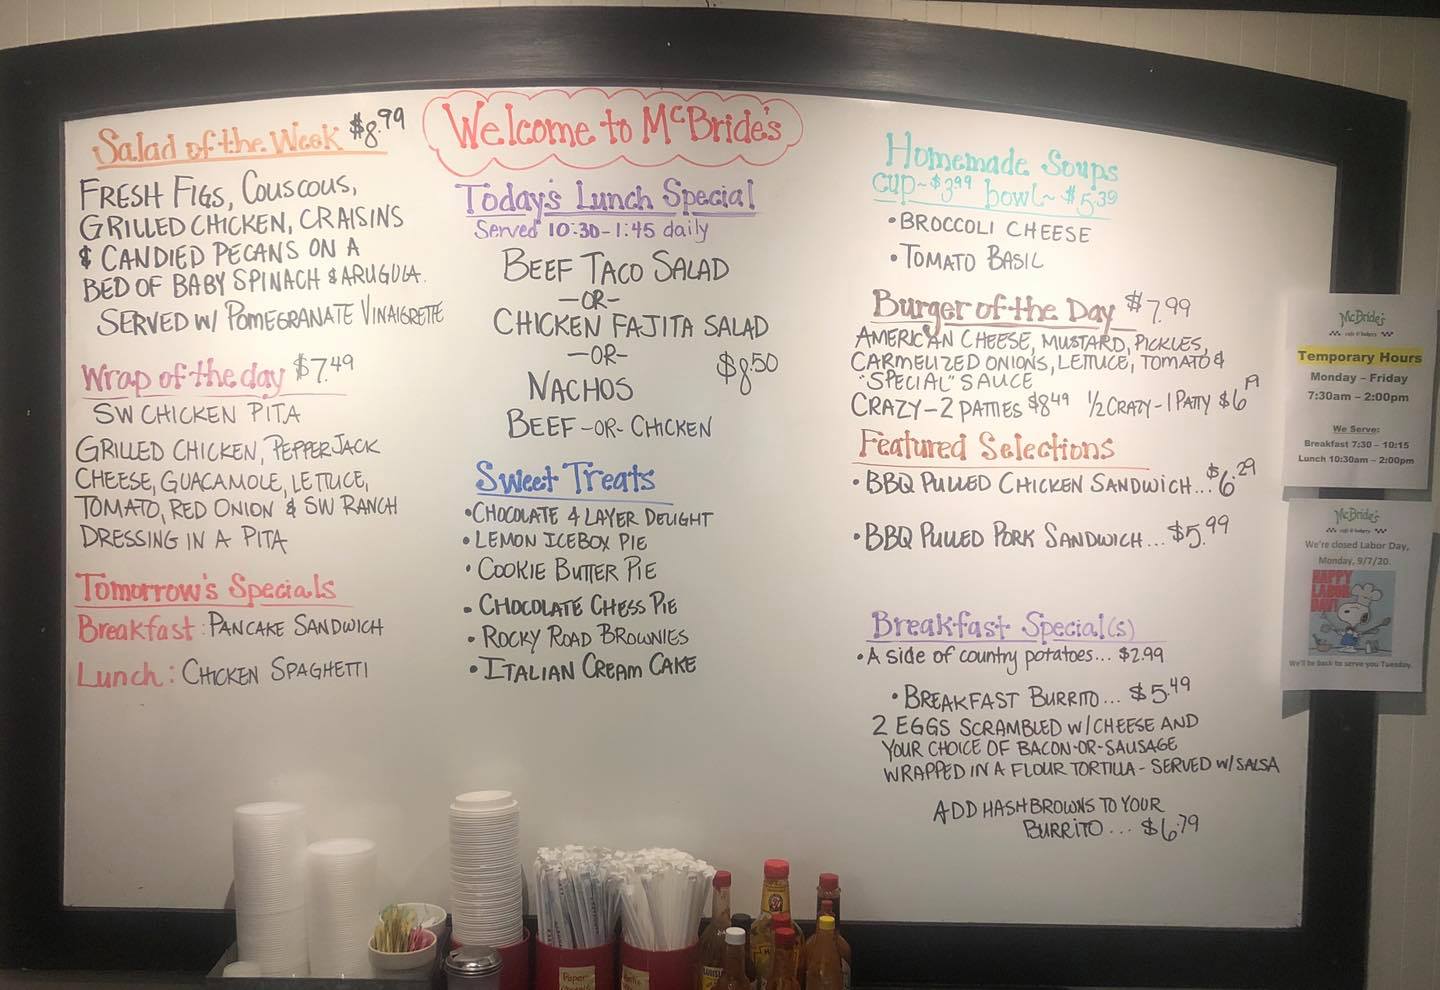 Welcome to McBride's
Salad of the Week $8.99
FRESH FIGS, COUSCOUS,
GRILLED CHICKEN, CRAISINS
& CANDIED PECANS ON A
BED OF BABY SPINACH & ARUGULA.
SERVED W/ POMEGRANATE VINAIGRETTE
Wrap of the day $7.49
SW CHICKEN PITA
GRILLED CHICKEN, PEPPER JACK
CHEESE, GUACAMOLE, LETTUCE,
TOMATO, RED ONION & SW RANCH
DRESSING IN A PITA
Tomorrow's Specials
Breakfast: PANCAKE SANDWICH
Lunch: CHICKEN SPAGHETTI
Today's Lunch Special
Served 10:30-1:45 daily
BEEF TACO SALAD
-OR-
CHICKEN FAJITA SALAD
-OR-
NACHOS $8.50
BEEF -OR- CHICKEN
Sweet Treats
•CHOCOLATE 4 LAYER DELIGHT
• LEMON ICEBOX PIE
• COOKIE BUTTER PIE
• CHOCOLATE CHESS PIE
• ROCKY ROAD BROWNIES
• ITALIAN CREAM CAKE
Homemade Soups
cup~$3.99 bowl~$5.39
• BROCCOLI CHEESE
• TOMATO BASIL
Burger of the Day $7.99
AMERICAN CHEESE, MUSTARD, PICKLES,
CARMELIZED ONIONS, LETTUCE, TOMATO &
"SPECIAL" SAUCE
CRAZY-2 PATTIES $8.49 1/2 CRAZY-1 PATTY $6
Featured Selections
• BBQ PULLED CHICKEN SANDWICH...$6.29
• BBQ PULLED PORK SANDWICH...$5.99
Breakfast Special(s)
• A side of country potatoes... $2.99
• BREAKFAST BURRITO... $5.49
2 EGGS SCRAMBLED W/ CHEESE AND
YOUR CHOICE OF BACON-OR-SAUSAGE
WRAPPED IN A FLOUR TORTILLA - SERVED W/ SALSA
ADD HASHBROWNS TO YOUR
BURRITO... $6.79
McBride's
café & bakery
Temporary Hours
Monday – Friday
7:30am – 2:00pm
We Serve:
Breakfast 7:30 – 10:15
Lunch 10:30am – 2:00pm
McBride's
café & bakery
We're closed Labor Day,
Monday, 9/7/20.
HAPPY
LABOR
DAY!
We'll be back to serve you Tuesday.
Paper